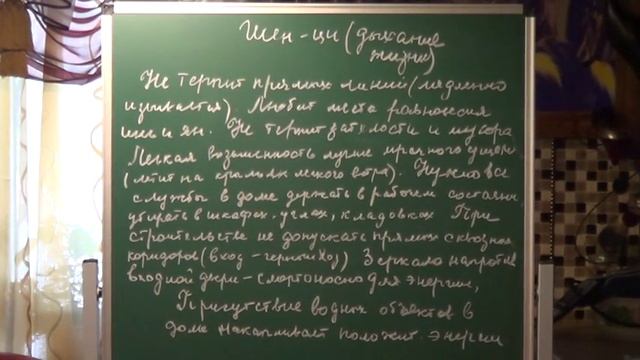 Шен-ци (дыхание
жизни)
Не терпит прямых линий (медленно
извивается). Любит места равновесия
инь и ян. Не терпит затхлости и мусора
Легкая возвышенность лучше мрачного ущелья
(летит на крыльях легкого ветра). Нужно все
службы в доме держать в рабочем состоянии,
убирать в шкафах, углах, кладовках При
строительстве не допускать прямых сквозных
коридоров (вход - черный ход) Зеркало напротив
входной двери - смертоносно для энергии,
Присутствие водных объектов в
доме накапливает положит. энергии